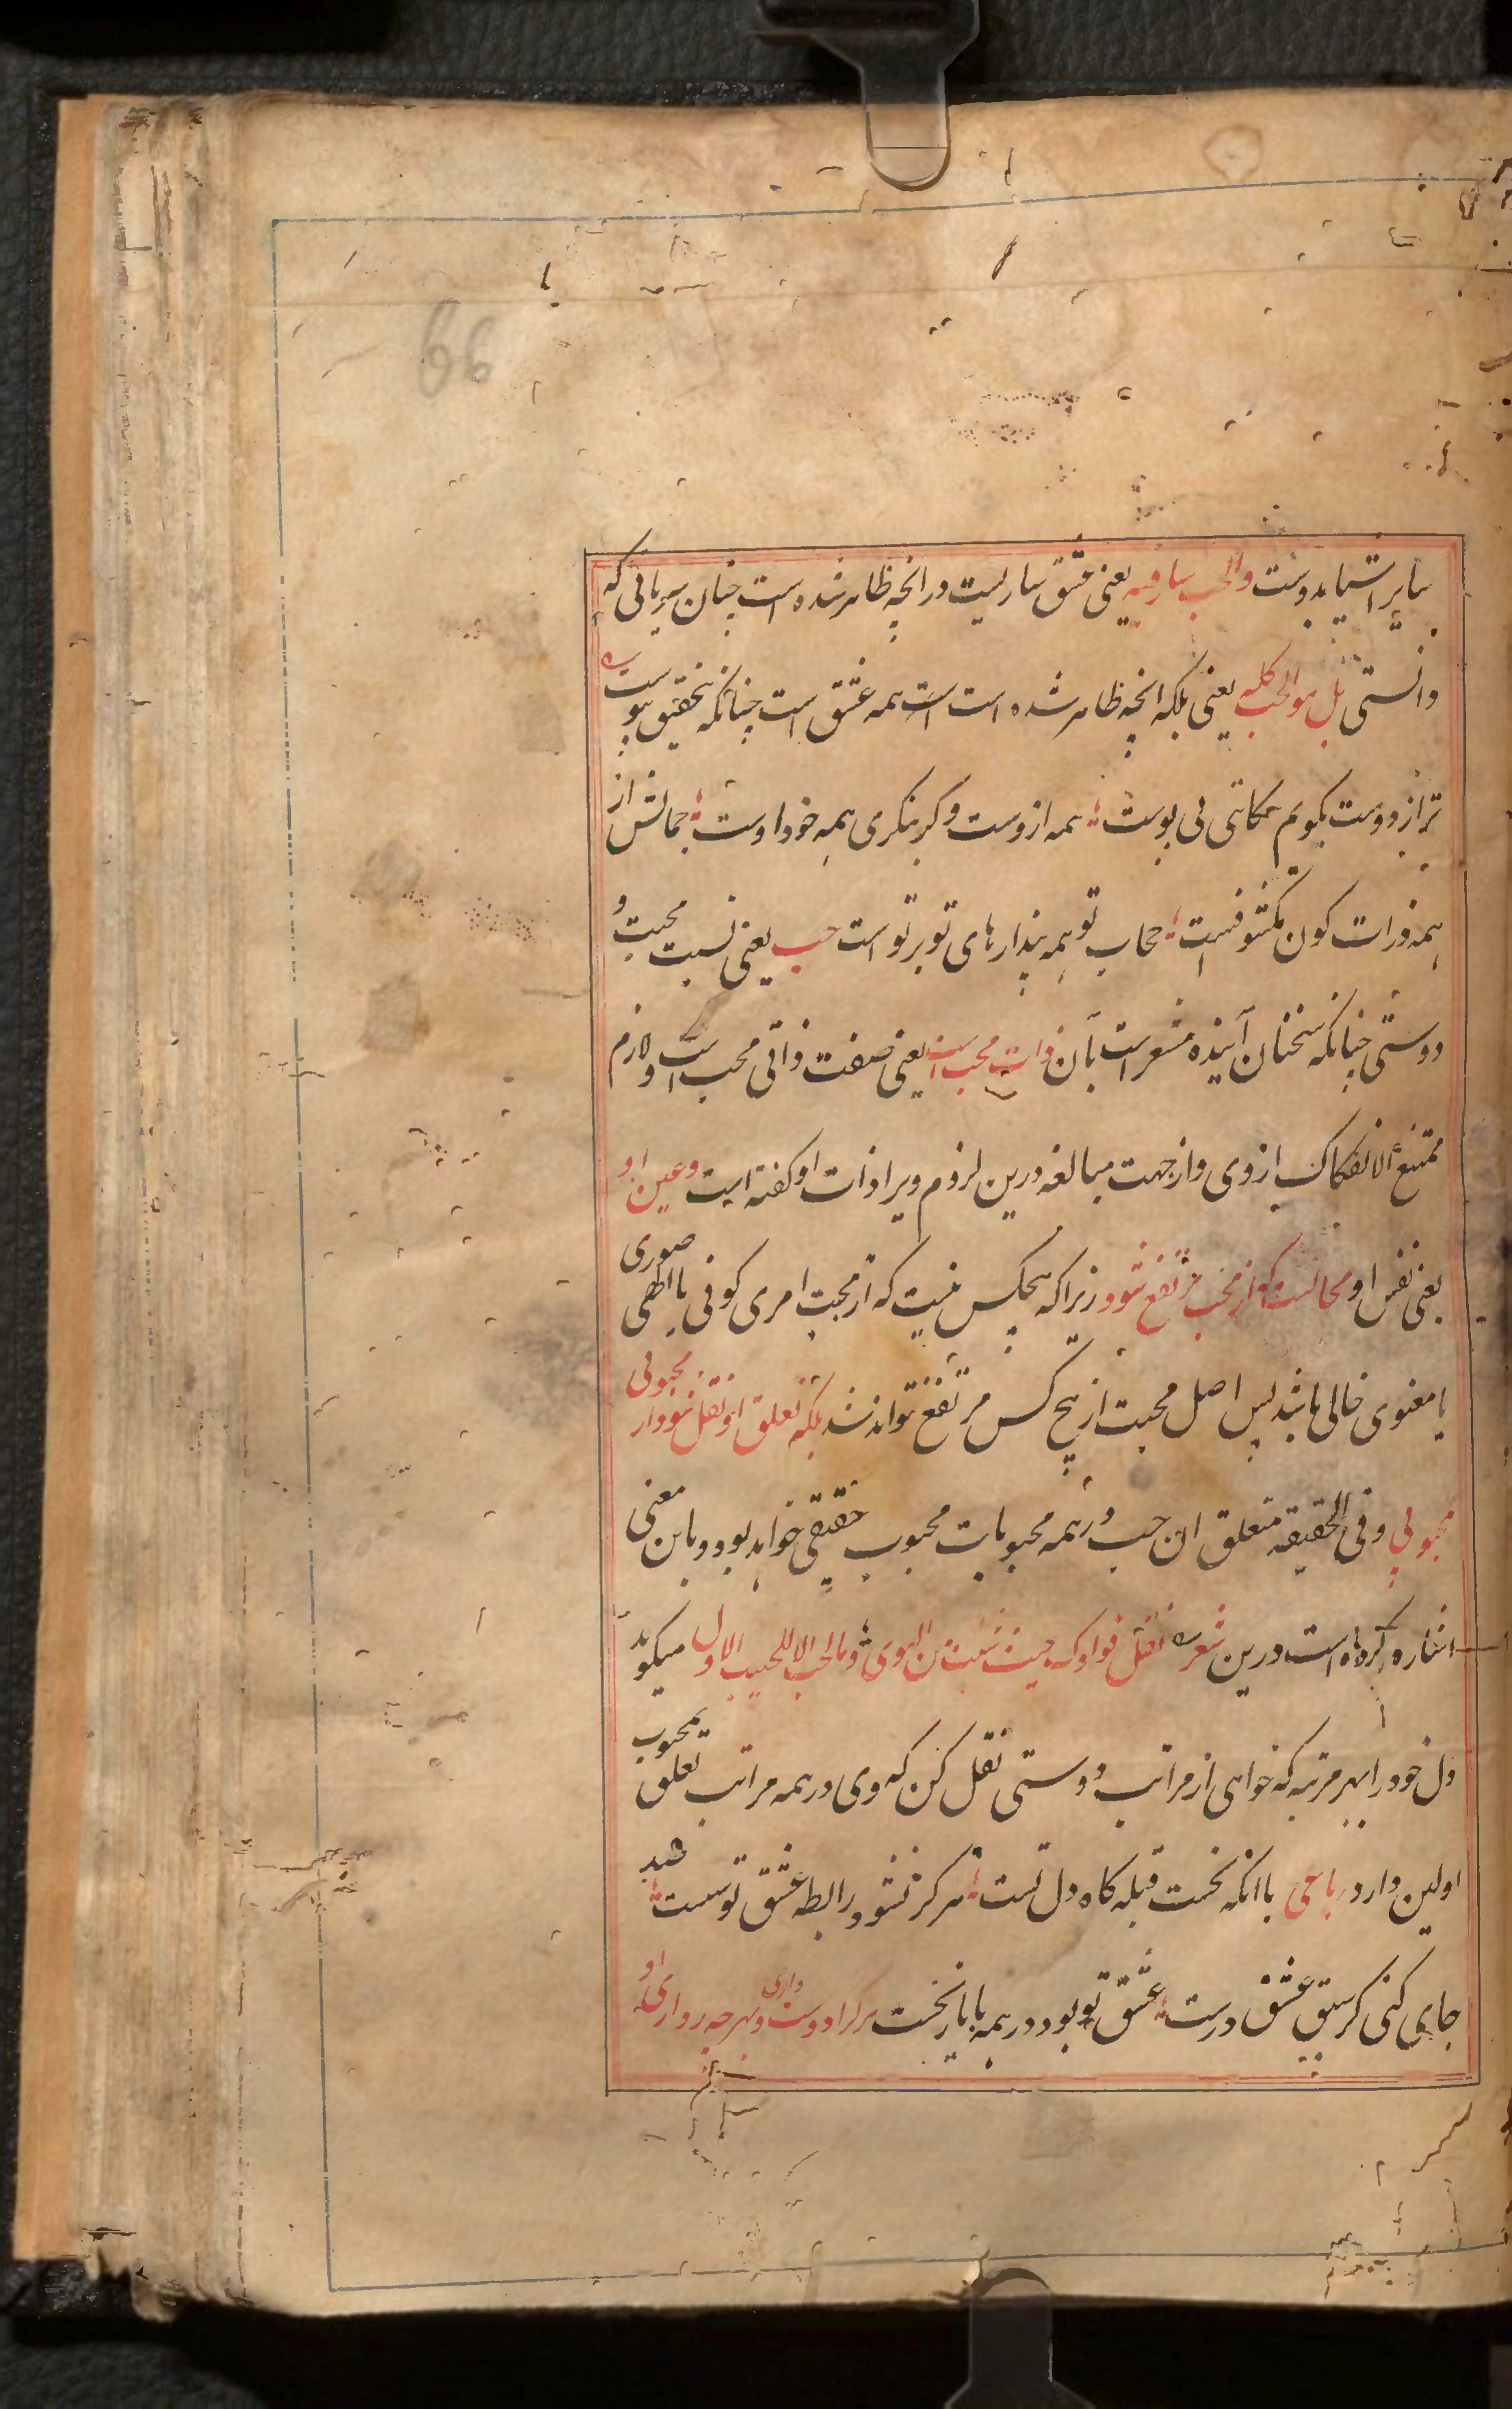 66
سایر اشیا بدوست والحب سار فیه یعنی عشق ساریست در انچه ظاهر شده است چنان سریانی که
دانستی بل هو الحب کله یعنی بلکه انچه ظاهر شده است است همه عشق است چنانکه بتحقیق پیوست
ترا ز دوست بکویم حکایتی بی پوست همه ازوست وکر بنکری همه خود اوست جمالش از
همه ذرات کون مکشوفست حجاب تو همه پندارهای تو بر تو است حب یعنی نسبت محبت و
دوستی چنانکه سخنان آینده مشعر است بآن ذات محب است یعنی صفت ذاتی محب است و لازم
ممتنع الانفکاک ازوی و از جهت مبالغه درین لزوم ویرا ذات او کفته است وعین او
یعنی نفس او محالست که از محب مرتفع شود زیرا که هیچکس نیست که از محبت امری کونی یا الهی صوری
یا معنوی خالی باشد پس اصل محبت از هیچ کس مرتفع نتواند شد بلکه تعلق او نقل شود از محبوبی
بمحبوبی و فی الحقیقه متعلق ان حب در همه محبوبات محبوب حقیقی خواهد بود و باین معنی
اشاره کرده است درین شعر نقل فوادک حیث شئت من الهوی وما الحب الا للحبیب الاول میکوید
دل خود را بهر مرتبه که خواهی از مراتب دوستی نقل کن که وی در همه مراتب تعلق بمحبوب
اولین دارد رباعی با انکه نخست قبله کاه دل تست هرکز نشود رابطه عشق تو سست صد
جای کنی کر سبق عشق درست عشق تو بود در همه با یار نخست هر کرا دوست داری و بهر چه روار ی او